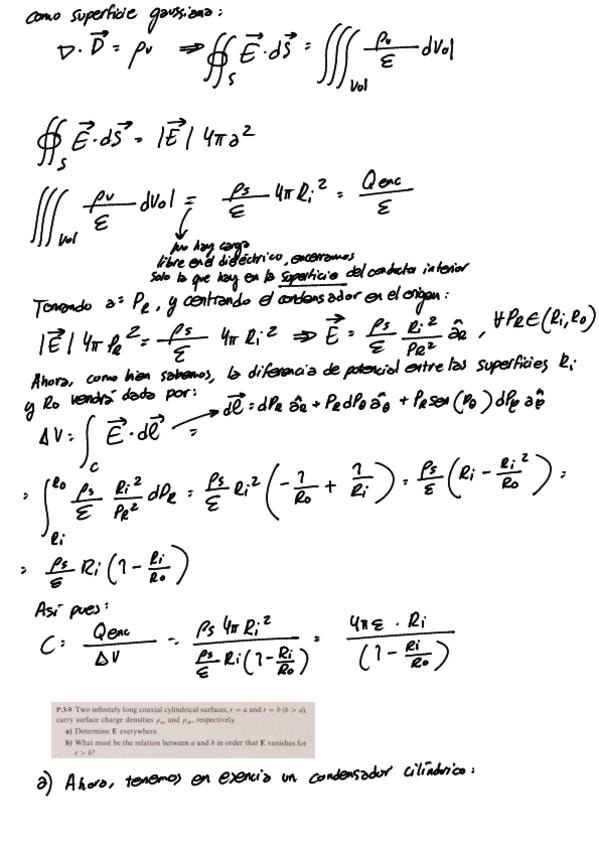 como superficie gaussiana:
∇·D⃗ = ρv ⇒ ∯_S E⃗·dS⃗ = ∭_Vol ρv/ε dVol
∯_S E⃗·dS⃗ = |E⃗| 4πa²
∭_Vol ρv/ε dVol = ρs/ε 4πRi² = Qenc/ε
no hay carga
libre en el dieléctrico, encerramos
solo la que hay en la superficie del conductor interior
Tomando a = PR, y centrando el condensador en el origen:
|E⃗| 4π PR² = ρs/ε 4π Ri² ⇒ E⃗ = ρs/ε Ri²/PR² âR, ∀PR∈(Ri, Ro)
Ahora, como bien sabemos, la diferencia de potencial entre las superficies Ri
y Ro vendrá dada por:
dl⃗ = dPR âR + PR dPθ âθ + PR sen(Pθ) dPφ âφ
ΔV = ∫_C E⃗·dl⃗ =
= ∫_Ri^Ro ρs/ε Ri²/PR² dPR = ρs/ε Ri² (-1/Ro + 1/Ri) = ρs/ε (Ri - Ri²/Ro) =
= ρs/ε Ri (1 - Ri/Ro)
Así pues:
C = Qenc/ΔV = ρs 4π Ri² / (ρs/ε Ri (1 - Ri/Ro)) = 4πε · Ri / (1 - Ri/Ro)
P.3-9 Two infinitely long coaxial cylindrical surfaces, r = a and r = b (b > a),
carry surface charge densities ρsa and ρsb, respectively.
a) Determine E everywhere.
b) What must be the relation between a and b in order that E vanishes for
r > b?
a) Ahora, tenemos en esencia un condensador cilíndrico: